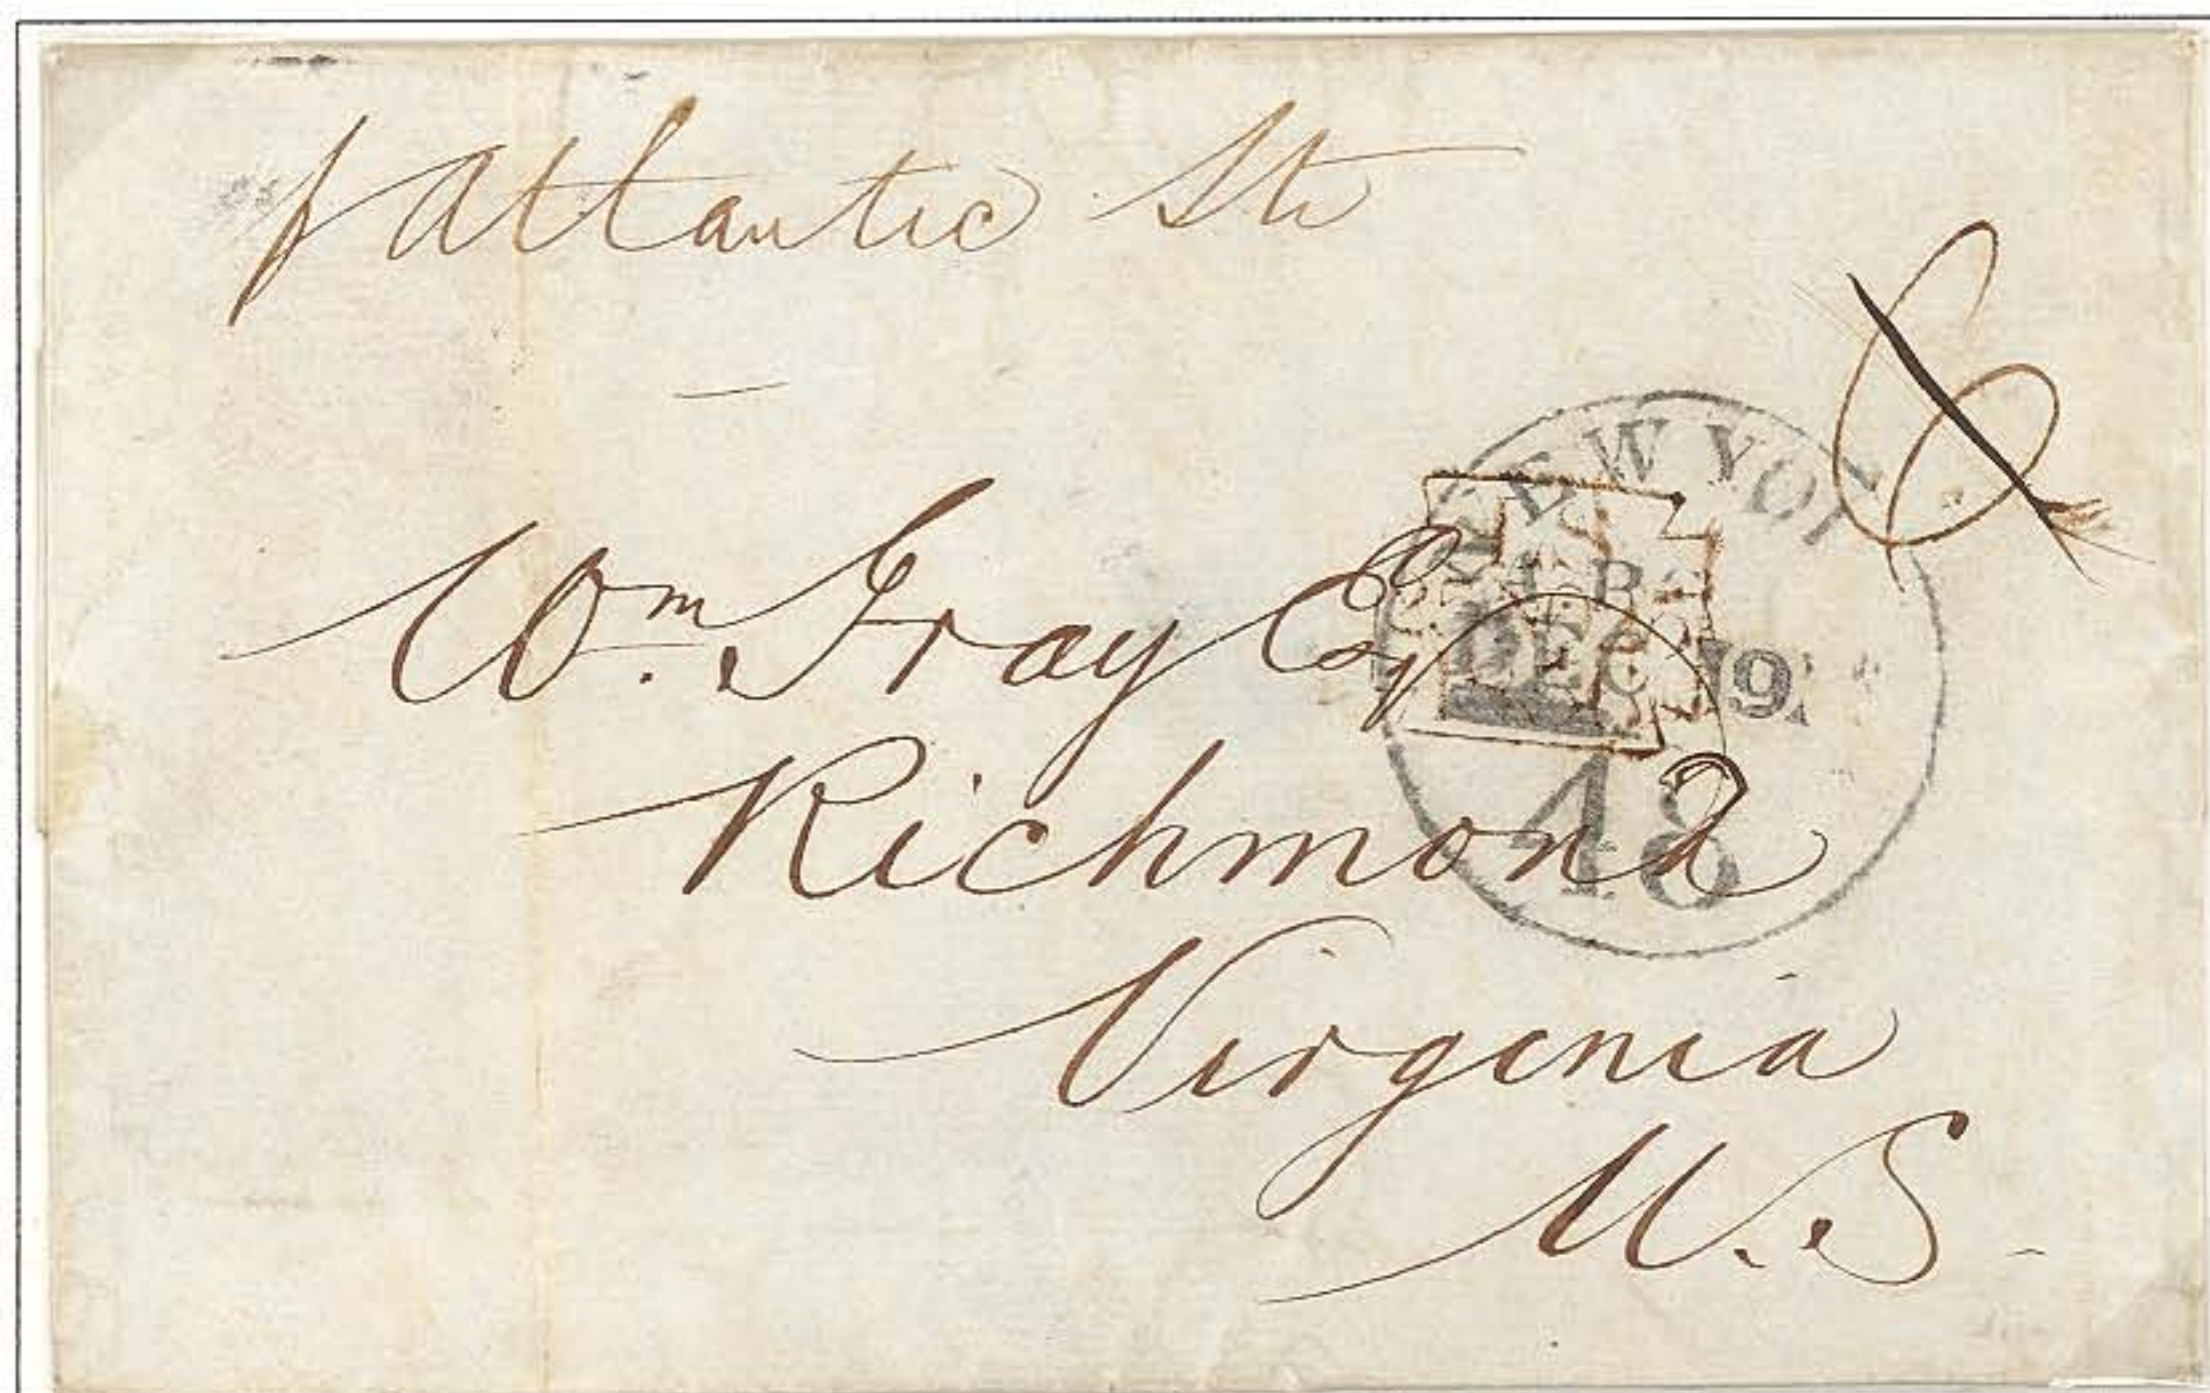 p Atlantic Str
NEW YO
DEC 19
48
Wm. Gray Esq
Richmond
Virginia
U.S